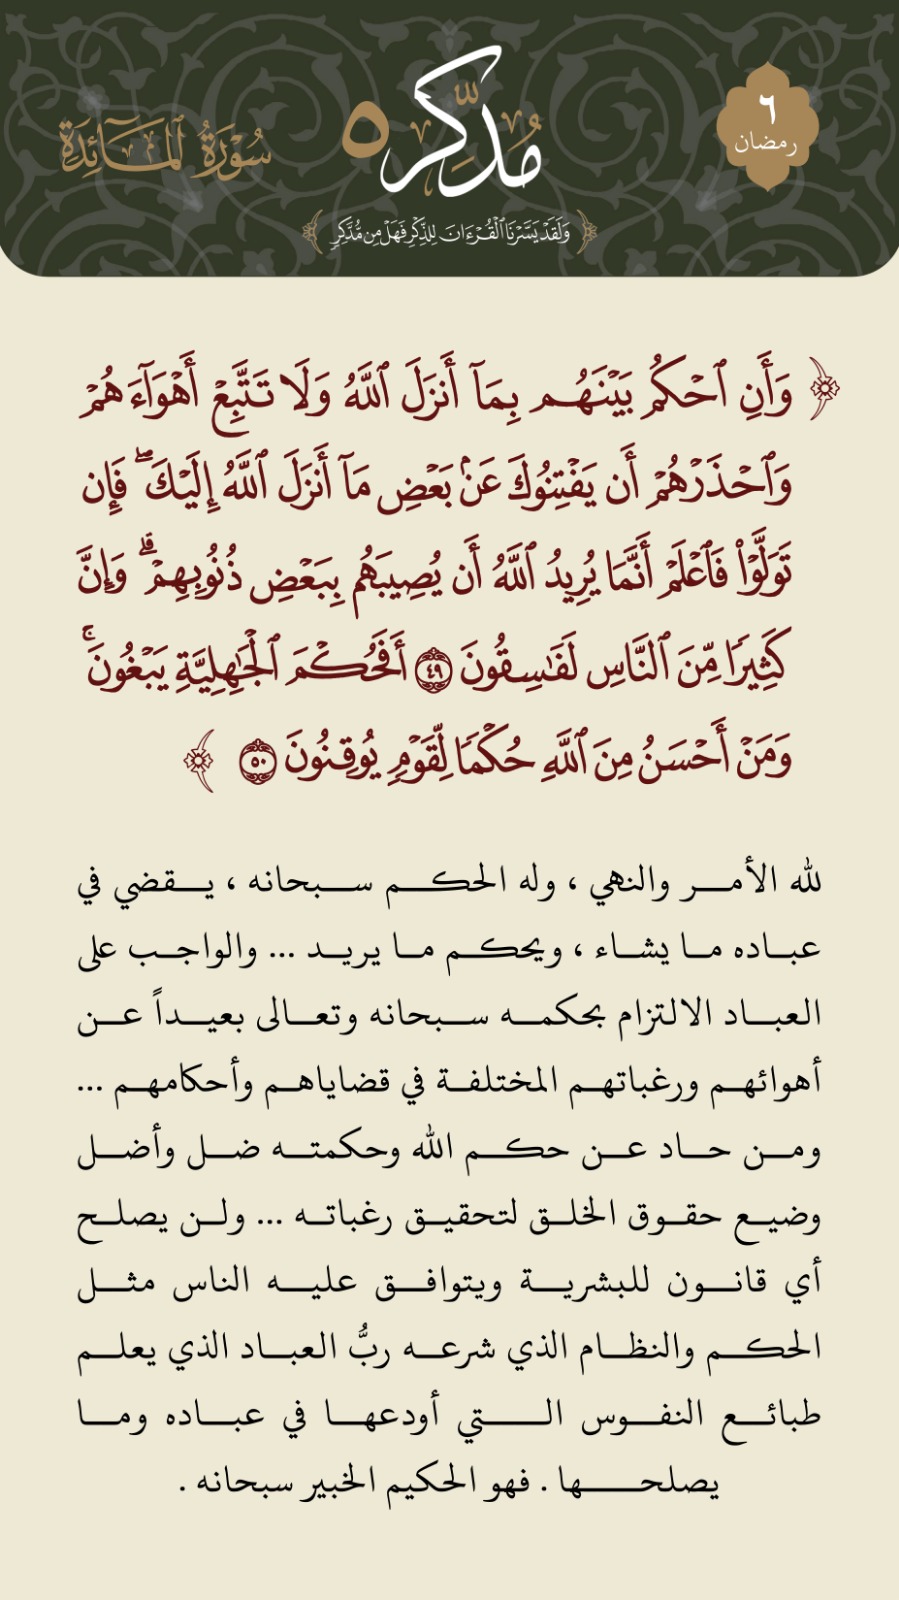 ٦
رمضان
مُدَّكِر ٥
سُورَةُ ٱلْمَائِدَةِ
﴿ وَلَقَدْ يَسَّرْنَا ٱلْقُرْءَانَ لِلذِّكْرِ فَهَلْ مِن مُّدَّكِرٍ ﴾
﴿ وَأَنِ ٱحْكُم بَيْنَهُم بِمَآ أَنزَلَ ٱللَّهُ وَلَا تَتَّبِعْ أَهْوَآءَهُمْ
وَٱحْذَرْهُمْ أَن يَفْتِنُوكَ عَنۢ بَعْضِ مَآ أَنزَلَ ٱللَّهُ إِلَيْكَ ۖ فَإِن
تَوَلَّوْا۟ فَٱعْلَمْ أَنَّمَا يُرِيدُ ٱللَّهُ أَن يُصِيبَهُم بِبَعْضِ ذُنُوبِهِمْ ۗ وَإِنَّ
كَثِيرًا مِّنَ ٱلنَّاسِ لَفَـٰسِقُونَ ٤٩ أَفَحُكْمَ ٱلْجَـٰهِلِيَّةِ يَبْغُونَ ۚ
وَمَنْ أَحْسَنُ مِنَ ٱللَّهِ حُكْمًا لِّقَوْمٍ يُوقِنُونَ ٥٠ ﴾
لله الأمر والنهي ، وله الحكم سبحانه ، يقضي في
عباده ما يشاء ، ويحكم ما يريد ... والواجب على
العباد الالتزام بحكمه سبحانه وتعالى بعيداً عن
أهوائهم ورغباتهم المختلفة في قضاياهم وأحكامهم ...
ومن حاد عن حكم الله وحكمته ضل وأضل
وضيع حقوق الخلق لتحقيق رغباته ... ولن يصلح
أي قانون للبشرية ويتوافق عليه الناس مثل
الحكم والنظام الذي شرعه ربُّ العباد الذي يعلم
طبائع النفوس التي أودعها في عباده وما
يصلحها . فهو الحكيم الخبير سبحانه .